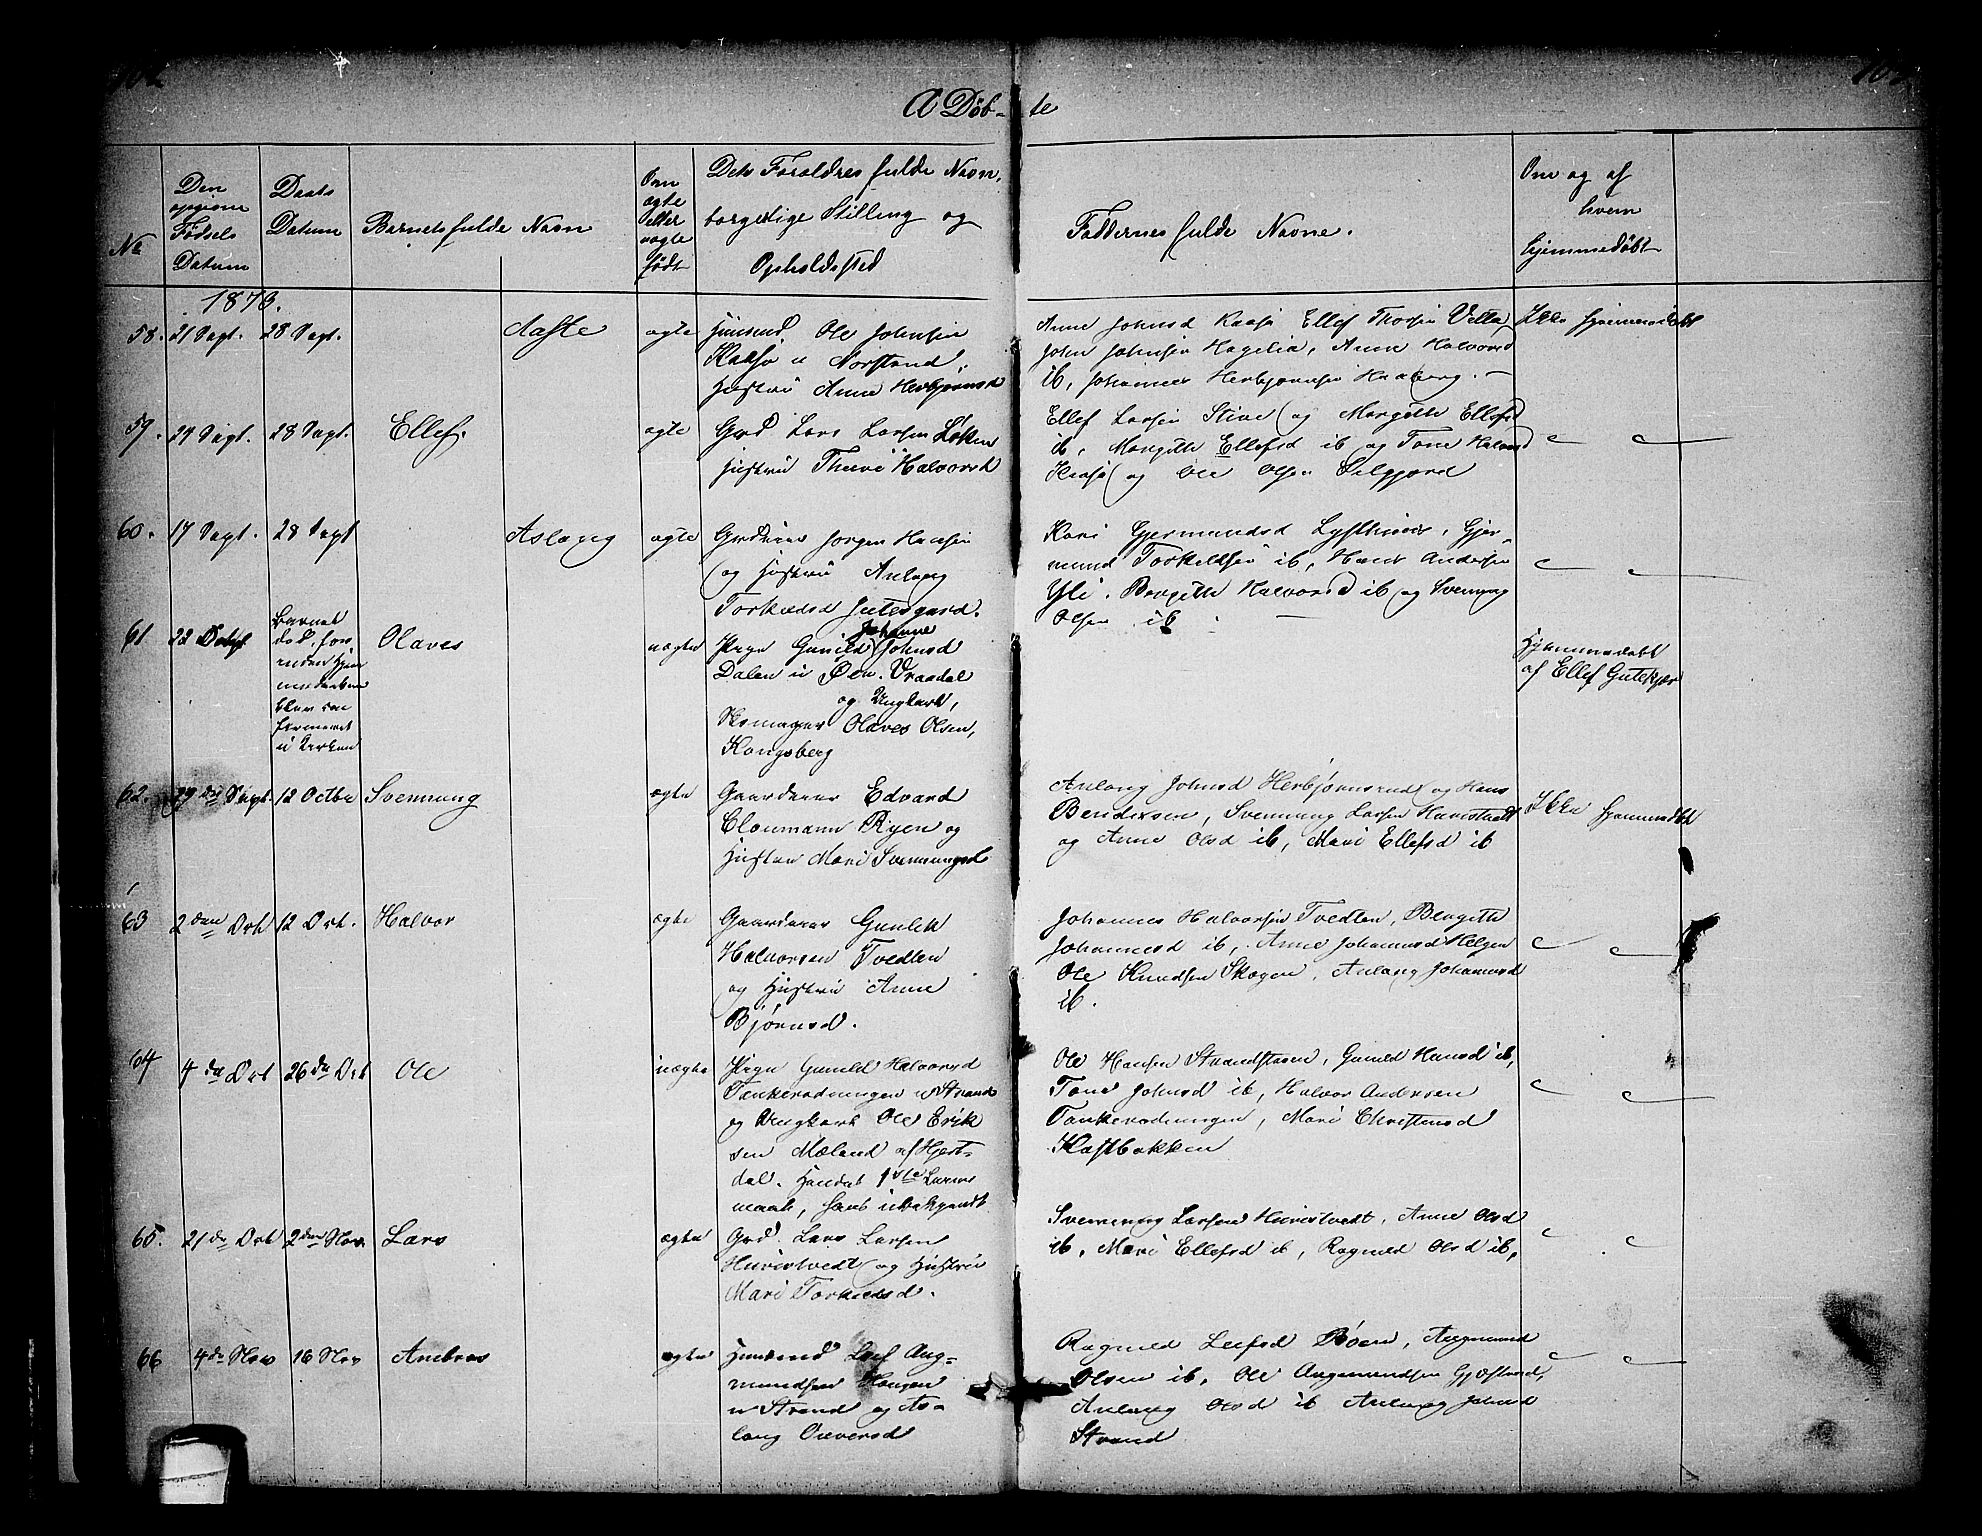 102
A Døb-
te
No
Den
opgivne
Fødsels
Datum
Daabs
Datum
Barnets fulde Navn
Om
ægte
eller
uægte
født
Dets Forældres fulde Navn,
borgerlige Stilling og
Opholdssted
Faddernes fulde Navne.
Om og af
hvem
hjemmedøbt
1873.
58. 21 Sept. 28 Sept. Aaste ægte Huusmd. Ole Johnsen
Kaasa u Norstrand,
Hustru Anne Herbjørnsd
Anne Johnsd Kaasa Ellef Thorsen
John Johnsen Hagelia, Anne Halvorsd
ib, Johannes Herbjørnsen Haaberg. -
Ikke hjemmedøbt
59. 24 Sept. 28 Sept. Ellef. ægte Grd. Lars Larsen
Hustru Halvorsd
Ellef Larsen og Margith Ellefsd
ib, Margith Ellefsd ib og Tone Halvorsd
Kaasa og Ole Olsen
60. 17 Sept. 28 Sept Aslaug ægte Grdeier Jørgen Hansen
og Hustru Anlaug
Torkildsd
Kari Gjermundsd Lysthuus, Gjer-
mund Torkildsen ib, Hans Andersen
Yli. Bergith Halvorsd ib og Svenung
Olsen ib. -
61 22 Sept Barnet
døde, for-
inden Hjem-
medaaben
blev con-
firmeret
i Kirken
Olaves uægte Pige Gunild Johanne Johnsd
Dalen u Øen. Vraadal
og Ungkarl,
Skomager Olaves Olsen,
Kongsberg
Hjemmedøbt
af Ellef
62. 29de Sept. 12 Octbr Svennung ægte Gaardeier Edvard
Cloumann Ryen og
Hustru Mari Svennungsd
Anlaug Johnsd Herbjørnsrud og Hans
Bendixsen, Svennung Larsen
og Anne Olsd ib, Mari Ellefsd ib
Ikke hjemmedøbt
63 2den Oct 12 Oct. Halvor ægte Gaardeier Gunlek
Halvorsen Tvedten
og Hustru Anne
Bjørnsd.
Johannes Halvorsen Tvedten, Bergith
Johannesd ib, Anne Johannesd Helgen
Ole Knudsen Skogen, Anlaug Johannesd
ib.
64 4de Oct 26de Oct Ole uægte Pige Gunild Halvorsd
Tankerodningen u Strand
og Ungkarl Ole Erik
sen Mæland af Hjert-
dal. Hendes 1ste Leier
maal, hans ubekjendt
Ole Hansen Gunild Hansd ib,
Tone Johnsd ib, Halvor Andersen
Tankerodningen, Mari Christensd
Kastbakken
65. 21de Oct 2den Nov. Lars ægte Grd. Lars Larsen
Hvirvistvedt og Hustru
Mari Torkildsd.
Svennung Larsen Hvirvistvedt, Anne Olsd
ib, Mari Ellefsd ib, Ragnild Olsd ib,
66 4de Nov 16 Nov Ambros ægte Huusmd Leif Aug-
mundsen Haugen
u Strand og As-
laug Oliversd
Ragnild Leifsd Bøen, Augmund
Olsen ib, Ole Augmundsen
Anlaug Olsd ib Anlaug Johnsd
Strand